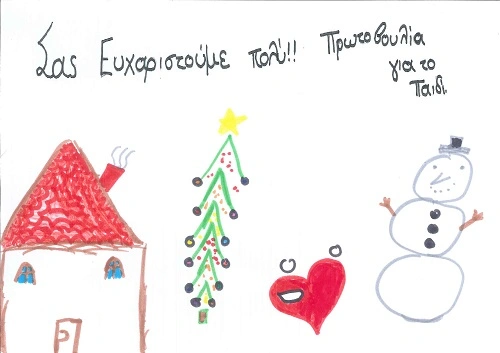 Σας Ευχαριστούμε πολύ!! Πρωτοβουλία
για το
Παιδί